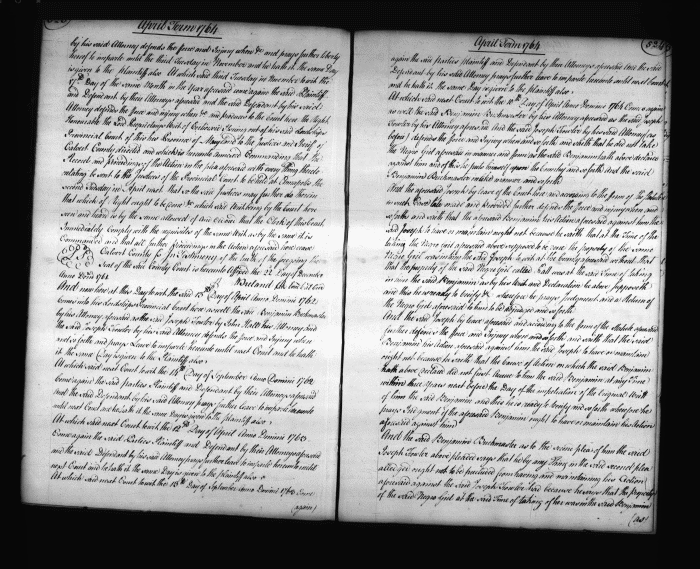 April Term 1764
by his said Attorney defends the force and Injury when &c and prays further liberty
hereof to imparle until the third Tuesday in November and he hath it the same Day
is given to the plaintiff also At which said third Tuesday in November to wit the
17th Day of the same Month in the Year aforesaid came again the said Plaintiff
and Defendant by their Attorneys aforesaid and the said Defendant by his said
Attorney defends the force and injury when &c and produces to the Court here the
Honourable the Lord Proprietarys Writ of Certiorari issuing out of his said Lordships
Provincial Court of this his Province of Maryland to the Justices and Sheriff of
Calvert County directed and which is hereunto annexed Commanding that the
Records and proceedings of the Action in the plea aforesaid with every thing thereto
relating be sent to the Justices of the Provincial Court to be held at Annapolis the
second Tuesday in April next that so the said Justices may further do therein
that which of Right ought to be done &c which said Writ being by the Court here
seen and heard is by the same allowed of and ordered that the Clerk of this Court
Immediately Comply with the requisites of the same Writ as by the same it is
Commanded and that all further proceedings in the Action aforesaid here cease
Calvert County ss In Testimony of the truth of the foregoing the
Seal of the said County Court is hereunto Affixed the 22 Day of December
Anno Domi 1761
And now here at this Day to wit the said 13th Day of April Anno Domini 1762
comes into his Lordships Provincial Court here as well the said Benjamin Buckmaster
by his Attorney aforesaid as the said Joseph Fowler by John Hall his Attorney and
the said Joseph Fowler by his said Attorney defends the force and Injury when
&c so forth and prays Leave to imparle hereunto until next Court and he hath
it the same Day is given to the Plaintiff also
At which said next Court to wit the 14th Day of September Anno Domini 1762
Come again the said Parties Plaintiff and Defendant by their Attorneys aforesaid
And the said Defendant by his said Attorney prays further Leave to imparle hereunto
until next Court and he hath it the same Day is given to the plaintiff also
At which said next Court to wit the 12th Day of April Anno Domini 1763
Come again the said Parties Plaintiff and Defendant by their Attorneys aforesaid
and the said Defendant by his said Attorney prays further leave to imparle hereunto until
next Court and he hath it the same Day is given to the plaintiff also
At which said next Court to wit the 13th Day of September Anno Domini 1763 Come
(again)
April Term 1764
again the said parties Plaintiff and Defendant by their Attorneys aforesaid And the said
Defendant by his said Attorney prays further leave to imparle hereunto until next Court
and he hath it the same Day is given to the plaintiff also
At which said next Court to wit the 10th Day of April Anno Domini 1764 Come again
as well the said Benjamin Buckmaster by his Attorney aforesaid as the said Joseph
Fowler by his Attorney aforesaid And the said Joseph Fowler by his said Attorney as
before defends the force and Injury when and so forth and saith that he did not take
the Negro Girl aforesaid in manner and form as the said Benjamin hath above declared
against him and of this he puts himself upon the Country and so forth And the said
Benjamin Buckmaster in like manner and so forth
And the aforesaid Joseph by leave of the Court here and according to the form of the Statute in
such Case late made and provided further defends the force and injury when and
so forth and saith that the aforesaid Benjamin his Action aforesaid against him the
said Joseph to have or maintain ought not because he saith that at the Time of the
taking the Negro Girl aforesaid above supposed to be done the property of the same
Negro Girl was in him the said Joseph to wit at the County aforesaid without that
that the property of the said Negro Girl called was at the said Time of taking
in him the said Benjamin as by his Writ and Declaration he above supposeth
and this he is ready to verify &c wherefore he prays judgment and a Return of
the Negro Girl aforesaid to him to be adjudged and so forth
And the said Joseph by leave aforesaid and according to the form of the Statute aforesaid
further defends the force and Injury when and so forth and saith that the said
Benjamin his Action aforesaid against him the said Joseph to have or maintain
ought not because he saith that the Cause of Action on which the said Benjamin
hath above declared did not first Accrue to him the said Benjamin at any Time
within three Years next before the Day of the impetration of the Original Writ
of him the said Benjamin and this he is ready to verify and so forth wherefore he
prays Judgment if the aforesaid Benjamin ought to have or maintain his Action
aforesaid against him
And the said Benjamin Buckmaster as to the second plea of him the said
Joseph Fowler above pleaded says that he by any Thing in the said second plea
alledged ought not to be precluded from having and maintaining his Action
aforesaid against the said Joseph Fowler because he avers that the property
of the said Negro Girl at the said Time of taking of her was in the said Benjamin
(as)